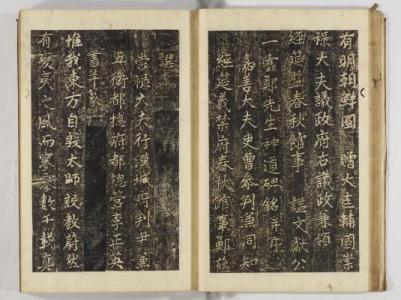 有明朝鮮國 贈大匡輔國崇
祿大夫議政府右議政兼領
經筵監春秋館事 諡文獻公
一蠹鄭先生神道碑銘并序
嘉善大夫吏曹參判兼同知
經筵義禁府春秋館事鄭蘊
撰
嘗憲大夫行漢城府判尹兼
五衛都摠府都摠管李正英
書并篆
惟我東方自殷太師設教蔚然
有變夷之風而寥寥數千載